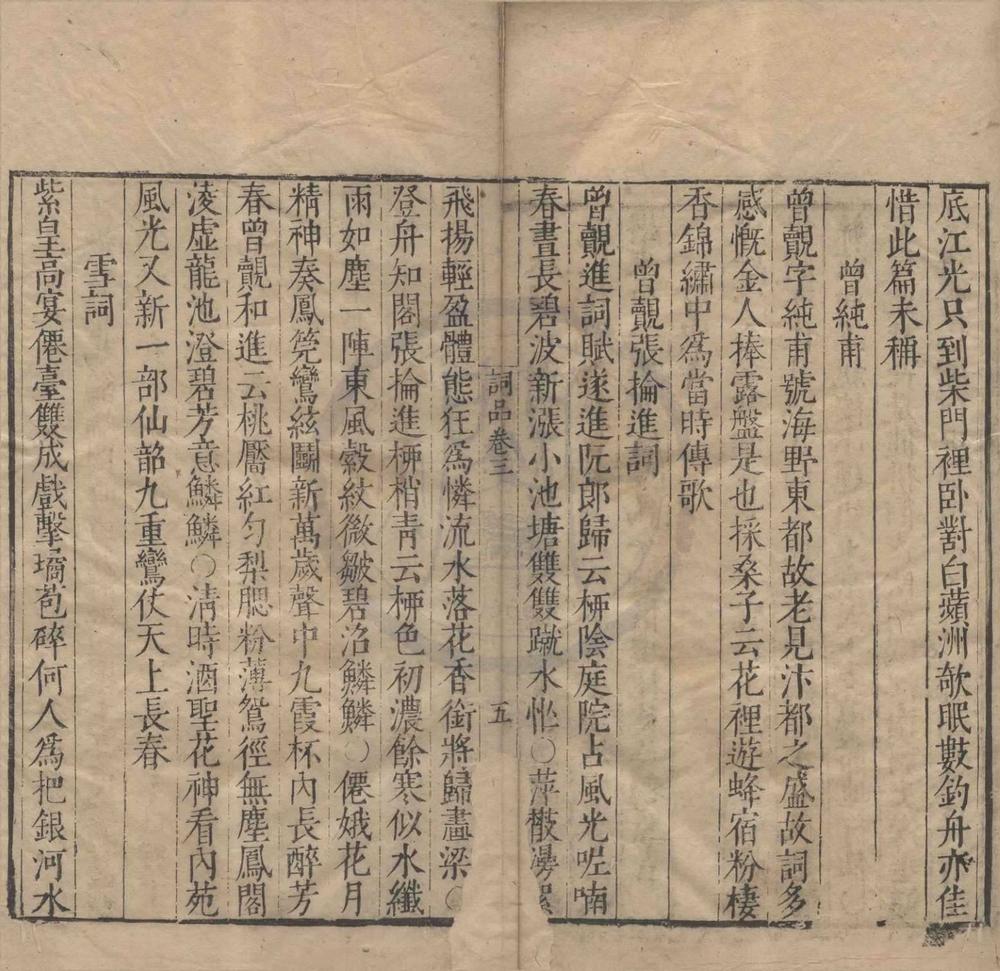 底江光只到柴門裡卧對白蘋洲欹眠數釣舟亦佳
惜此篇未稱
曾純甫
曾覿字純甫號海野東都故老見汴都之盛故詞多
感慨金人捧露盤是也採桑子云花裡遊蜂宿粉棲
香錦繡中爲當時傳歌
曾覿張掄進詞
曾覿進詞賦遂進阮郎歸云栁陰庭院占風光呢喃
春晝長碧波新漲小池塘雙雙蹴水忙○萍散漫絮
飛揚輕盈體態狂爲憐流水落花香銜將歸畫梁○
登舟知閣張掄進栁梢青云栁色初濃餘寒似水纖
雨如塵一陣東風縠紋微皺碧沼鱗鱗○僊娥花月
精神奏鳳筦鸞絃鬬新萬歲聲中九霞杯內長醉芳
春曾覿和進云桃靨紅勻梨腮粉薄鴛徑無塵鳳閣
淩虛龍池澄碧芳意鱗鱗○清時酒聖花神看內苑
風光又新一部仙韶九重鸞仗天上長春
雪詞
紫皇高宴僊臺雙成戲擊璚苞碎何人爲把銀河水
詞品卷三
五